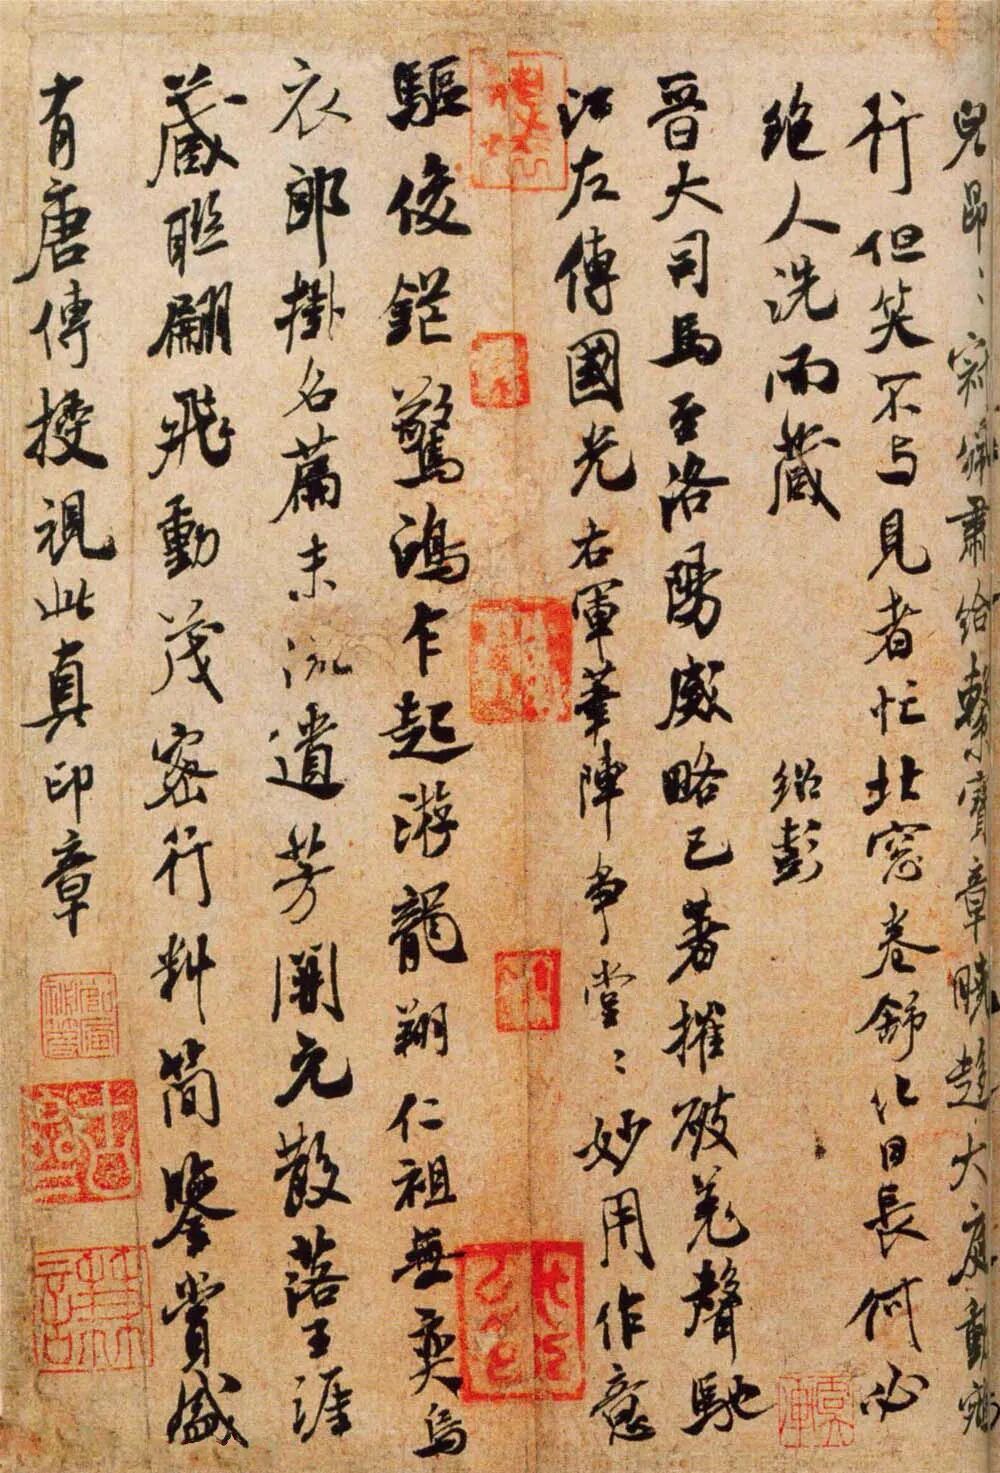 兒昂〻肅給繫寶章曉趨大慶動
行但笑不与見者忙北窓卷舒化日長何必
絶人洗而藏 紹彭
晉大司馬至洛陽威略已著摧破羌聲馳
江左傳國光右軍筆陣爭堂〻妙用作意
驅俊鋩驚鴻乍起游龍翔仁祖無奕烏
衣郎掛名篇末流遺芳開元散落王涯
藏聯翩飛動茂密行料簡鑒賞盛
有唐傳授視此真印章